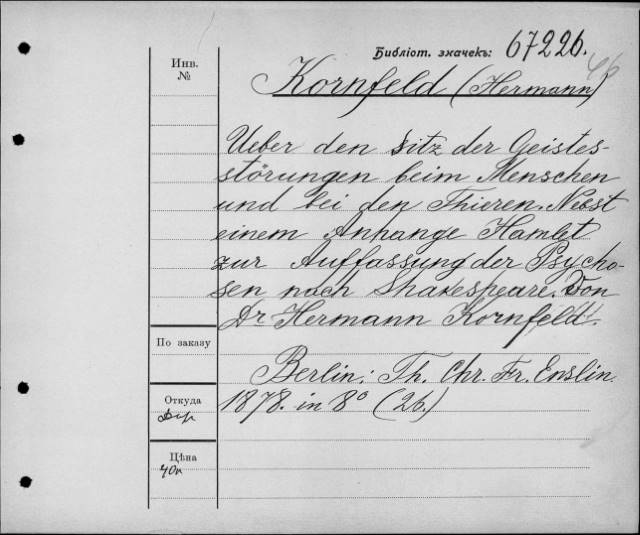 Библіот. значекъ: 67226.
Инв.
№
Kornfeld (Hermann)
Ueber den Sitz der Geistes-
störungen beim Menschen
und bei den Thieren. Nebst
einem Anhange Hamlet
zur Auffassung der Psycho-
sen nach Shakespeare. Von
Dr Hermann Kornfeld.
По заказу
Berlin: Th. Chr. Fr. Enslin.
Откуда
1878. in 8° (26.)
Цѣна
40к